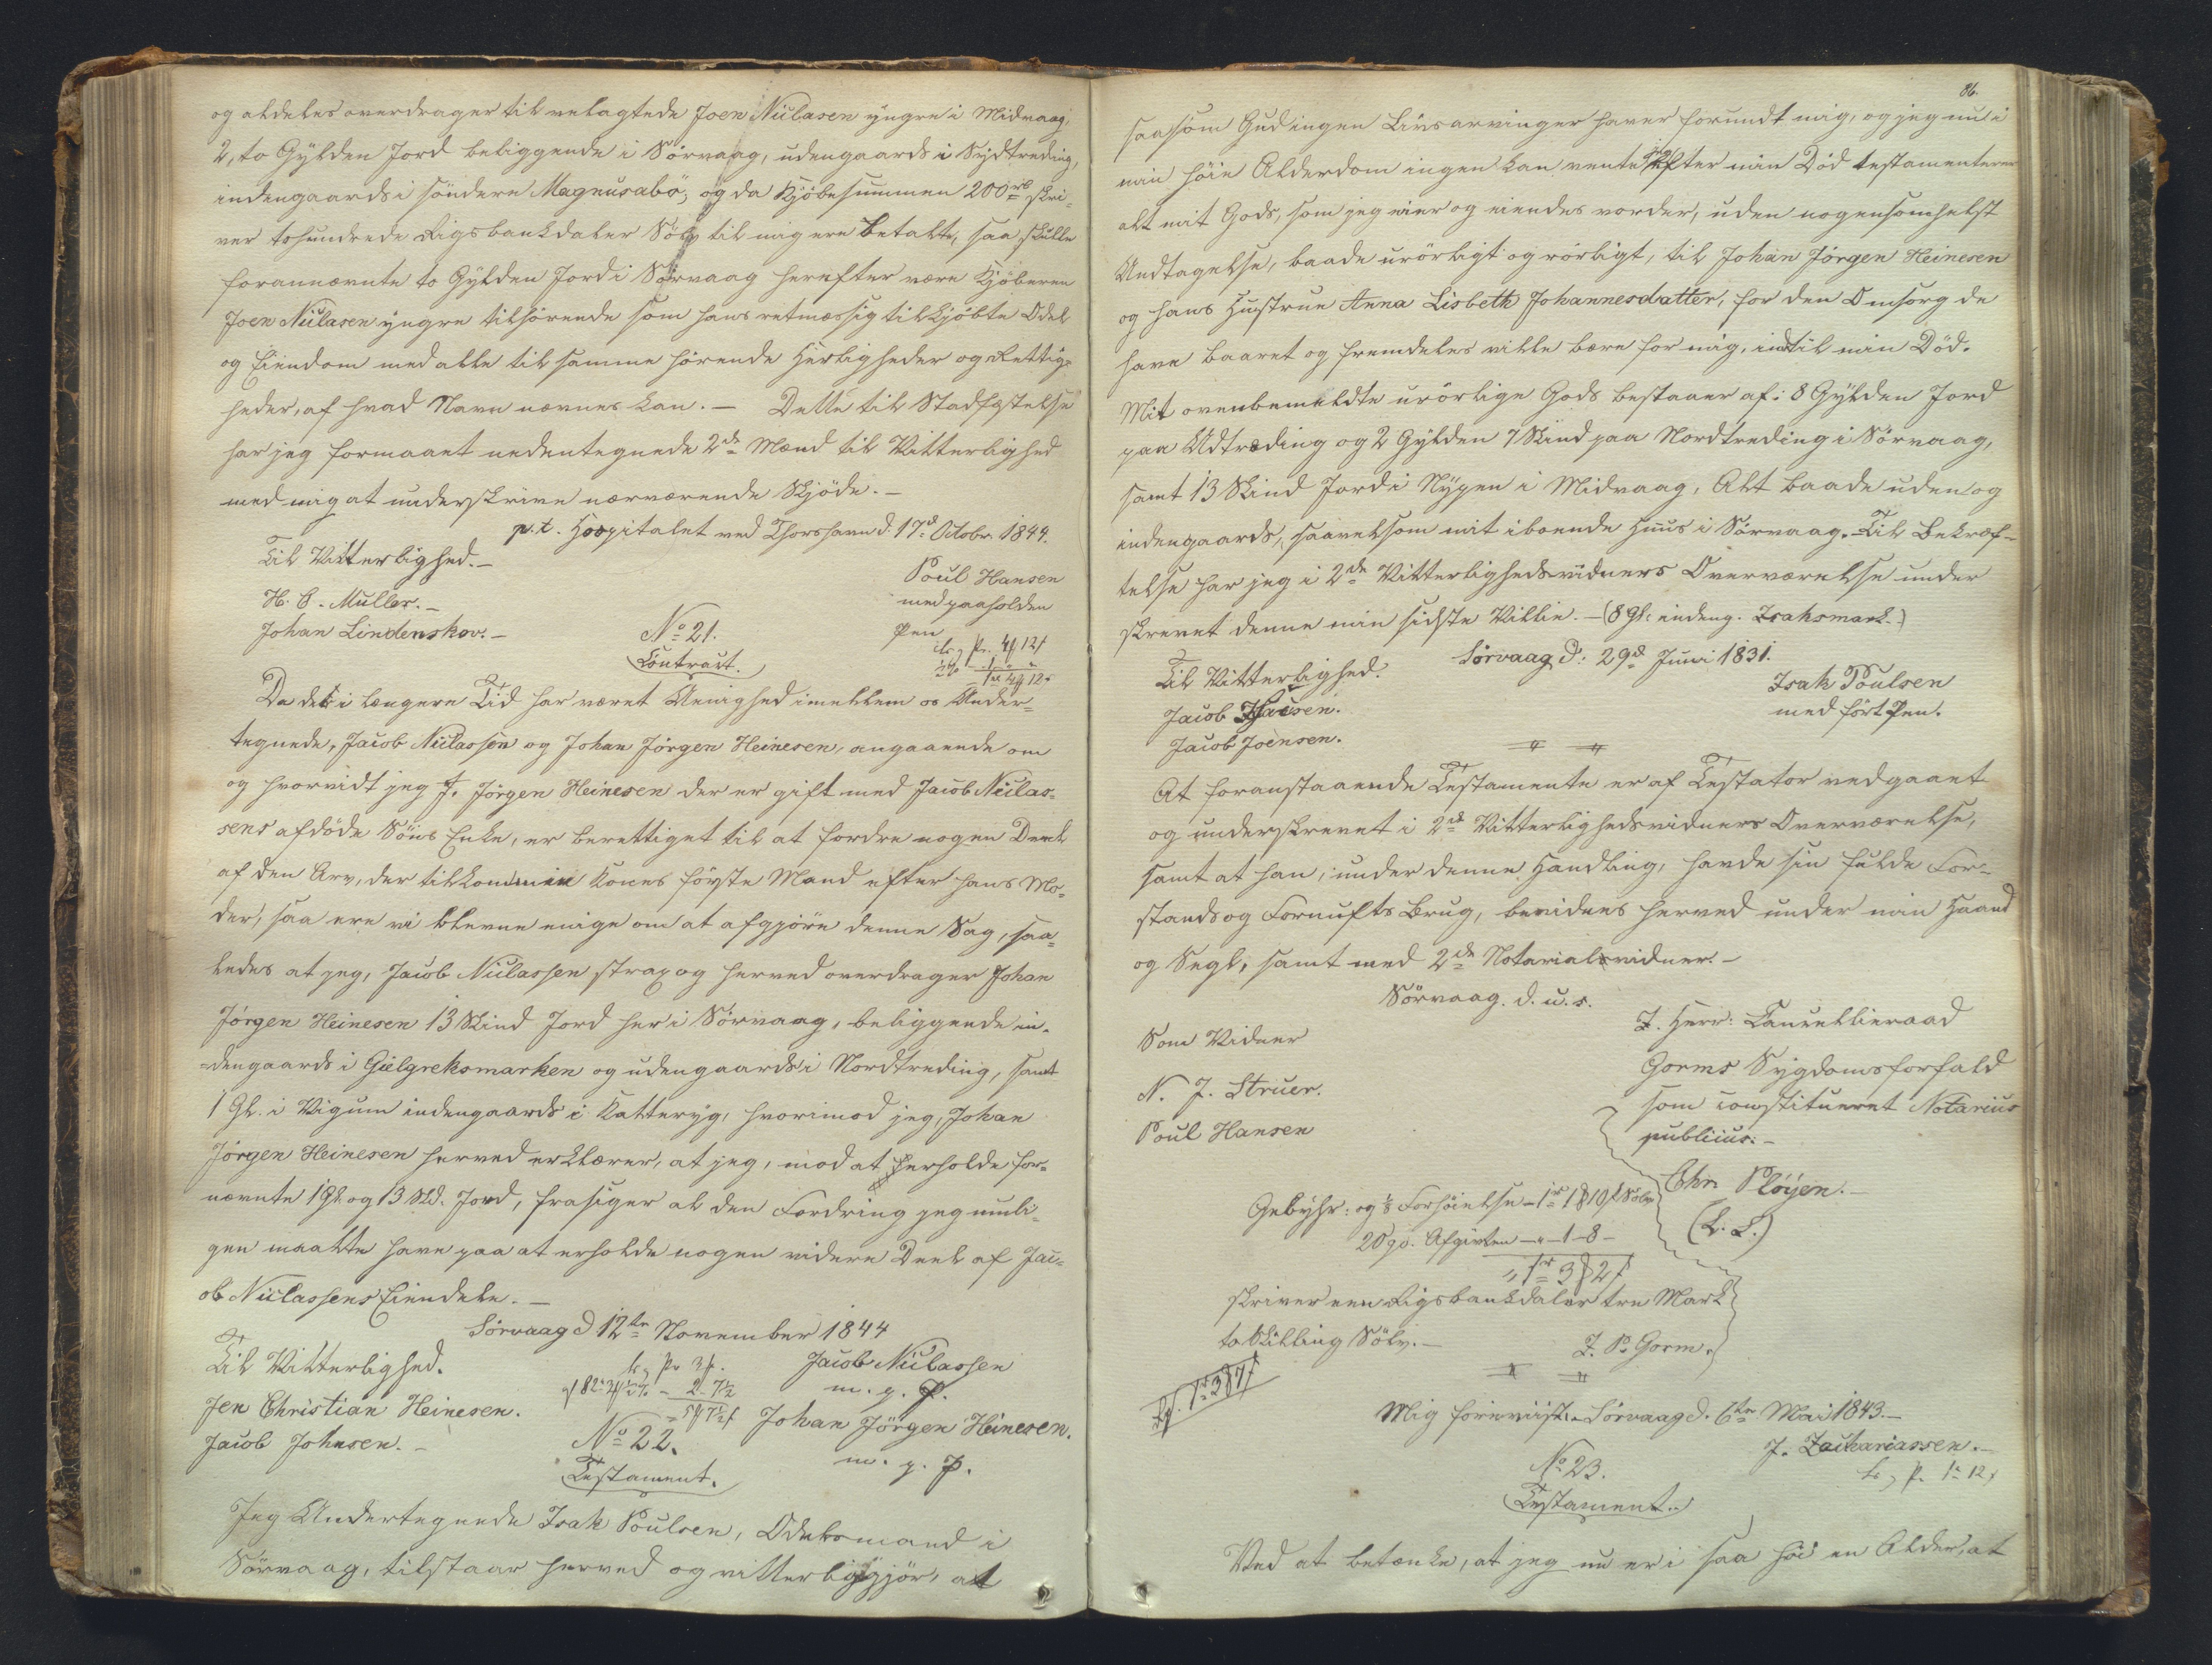 og aldeles overdrager til velagtede Joen Niclasen yngre i Midvaag,
2, to Gylden Jord beliggende i Sörvaag, udengaards i Sydtreding,
indengaards i söndere Magnusabö; og da Kjöbesummen 200 rbd skri-
ver tohundrede Rigsbankdaler Sölv til mig ere betalte, saa skulle
forannævnte to Gylden Jord i Sörvaag herefter være Kjöberen
Joen Niclasen yngre tilhörende som hans retmæssig tilkjöbte Odel
og Eiendom med alle til samme hörende Herligheder og Rettig-
heder, af hvad Navn nævnes kan. — Dette til Stadfæstelse
har jeg formaaet nedentegnede 2de Mænd til Vitterlighed
med mig at underskrive nærværende Skjöde. —
p. t. Hospitalet ved Thorshavn d. 17d Octobr. 1844.
Til Vitterlighed. —
Poul Hansen
H. C. Müller. —
med paaholden
Johan Lindenskov. —
Pen
No 21.
Contract.
Da det i længere Tid har været Uenighed imellem os Under-
tegnede, Jacob Niclassen og Johan Jörgen Heinesen, angaaende om
og hvorvidt jeg J. Jörgen Heinesen der er gift med Jacob Niclas-
sens afdöde Söns Enke, er berettiget til at fordre nogen Deel
af den Arv, der tilkom min Kones förste Mand efter hans Mo-
der, saa ere vi blevne enige om at afgjöre denne Sag, saa-
ledes at jeg, Jacob Niclassen strax og herved overdrager Johan
Jörgen Heinesen 13 Skind Jord her i Sörvaag, beliggende in-
dengaards i Gielgreksmarken og udengaards i Nordtreding, samt
1 Gl. i Vigum indengaards i Katteryg, hvorimod jeg, Johan
Jörgen Heinesen herved erklærer, at jeg, mod at erholde for-
nævnte 1 Gl. og 13 Skd. Jord, frasiger al den Fordring jeg muli-
gen maatte have paa at erholde nogen videre Deel af Jac-
ob Niclassens Eiendele. —
Sörvaag d 12te November 1844
Til Vitterlighed.
Jacob Niclassen
m. f. P.
Jen Christian Heinesen.
Johan Jörgen Heinesen.
Jacob Johnsen. —
m. f. P.
No 22.
Testament.
Jeg Undertegnede Isak Poulsen, Odelsmand i
Sörvaag, tilstaar herved og vitterliggjör, at
86.
saasom Gud ingen Livsarvinger haver forundt mig, og jeg nu i
min höie Alderdom ingen kan vente efter min Död testamenterer
alt mit Gods, som jeg eier og eiendes vorder, uden nogensomhelst
Undtagelse, baade urörligt og rörligt, til Johan Jörgen Heinesen
og hans Hustrue Anna Lisbeth Johannesdatter, for den Omsorg de
have baaret og fremdeles ville bære for mig, indtil min Död.
Mit ovenbemeldte urörlige Gods bestaaer af: 8 Gylden Jord
paa Udtræding og 2 Gylden 7 Skind paa Nordtreding i Sörvaag,
samt 13 Skind Jord i Nypen i Midvaag, Alt baade uden og
indengaards, saavelsom mit iboende Huus i Sörvaag. — Til Bekræf-
telse har jeg i 2de Vitterlighedsvidners Overværelse under
skrevet denne min sidste Villie. — (8 Gl. indeng. Isaksmark.)
Sörvaag d: 29d Juni 1831.
Til Vitterlighed.
Isak Poulsen
med fört Pen.
Jacob Isacsen.
Jacob Joensen.
At foranstaaende Testamente er af Testator vedgaaet
og underskrevet i 2de Vitterlighedsvidners Overværelse,
samt at han, under denne Handling, havde sin fulde For-
stands og Fornufts Brug, bevidnes herved under min Haand
og Segl, samt med 2de Notarialvidner. —
Sörvaag. d. u. s.
Som Vidner
I. Herr: Cancellieraad
Gorms Sygdomsforfald
N. J. Struer.
som constitueret Notarius
Poul Hansen
publicus: —
Chr. Plöyen. —
(L. S.)
Gebyhr: og 1/2 Forhöielse — 1rd 1 # 10 s Sölv
20 pc. Afgivten — „ — 1 — 8 —
„ 1rd 3 # 2 s
skriver een Rigsbankdaler tre Mark
to Skilling Sölv. —
I. P. Gorm.
Mig foreviist. — Sörvaag d. 6te Mai 1843. —
J. Zachariassen. —
No 23.
Testament.
Ved at betænke, at jeg nu er i saa höi en Alder, at